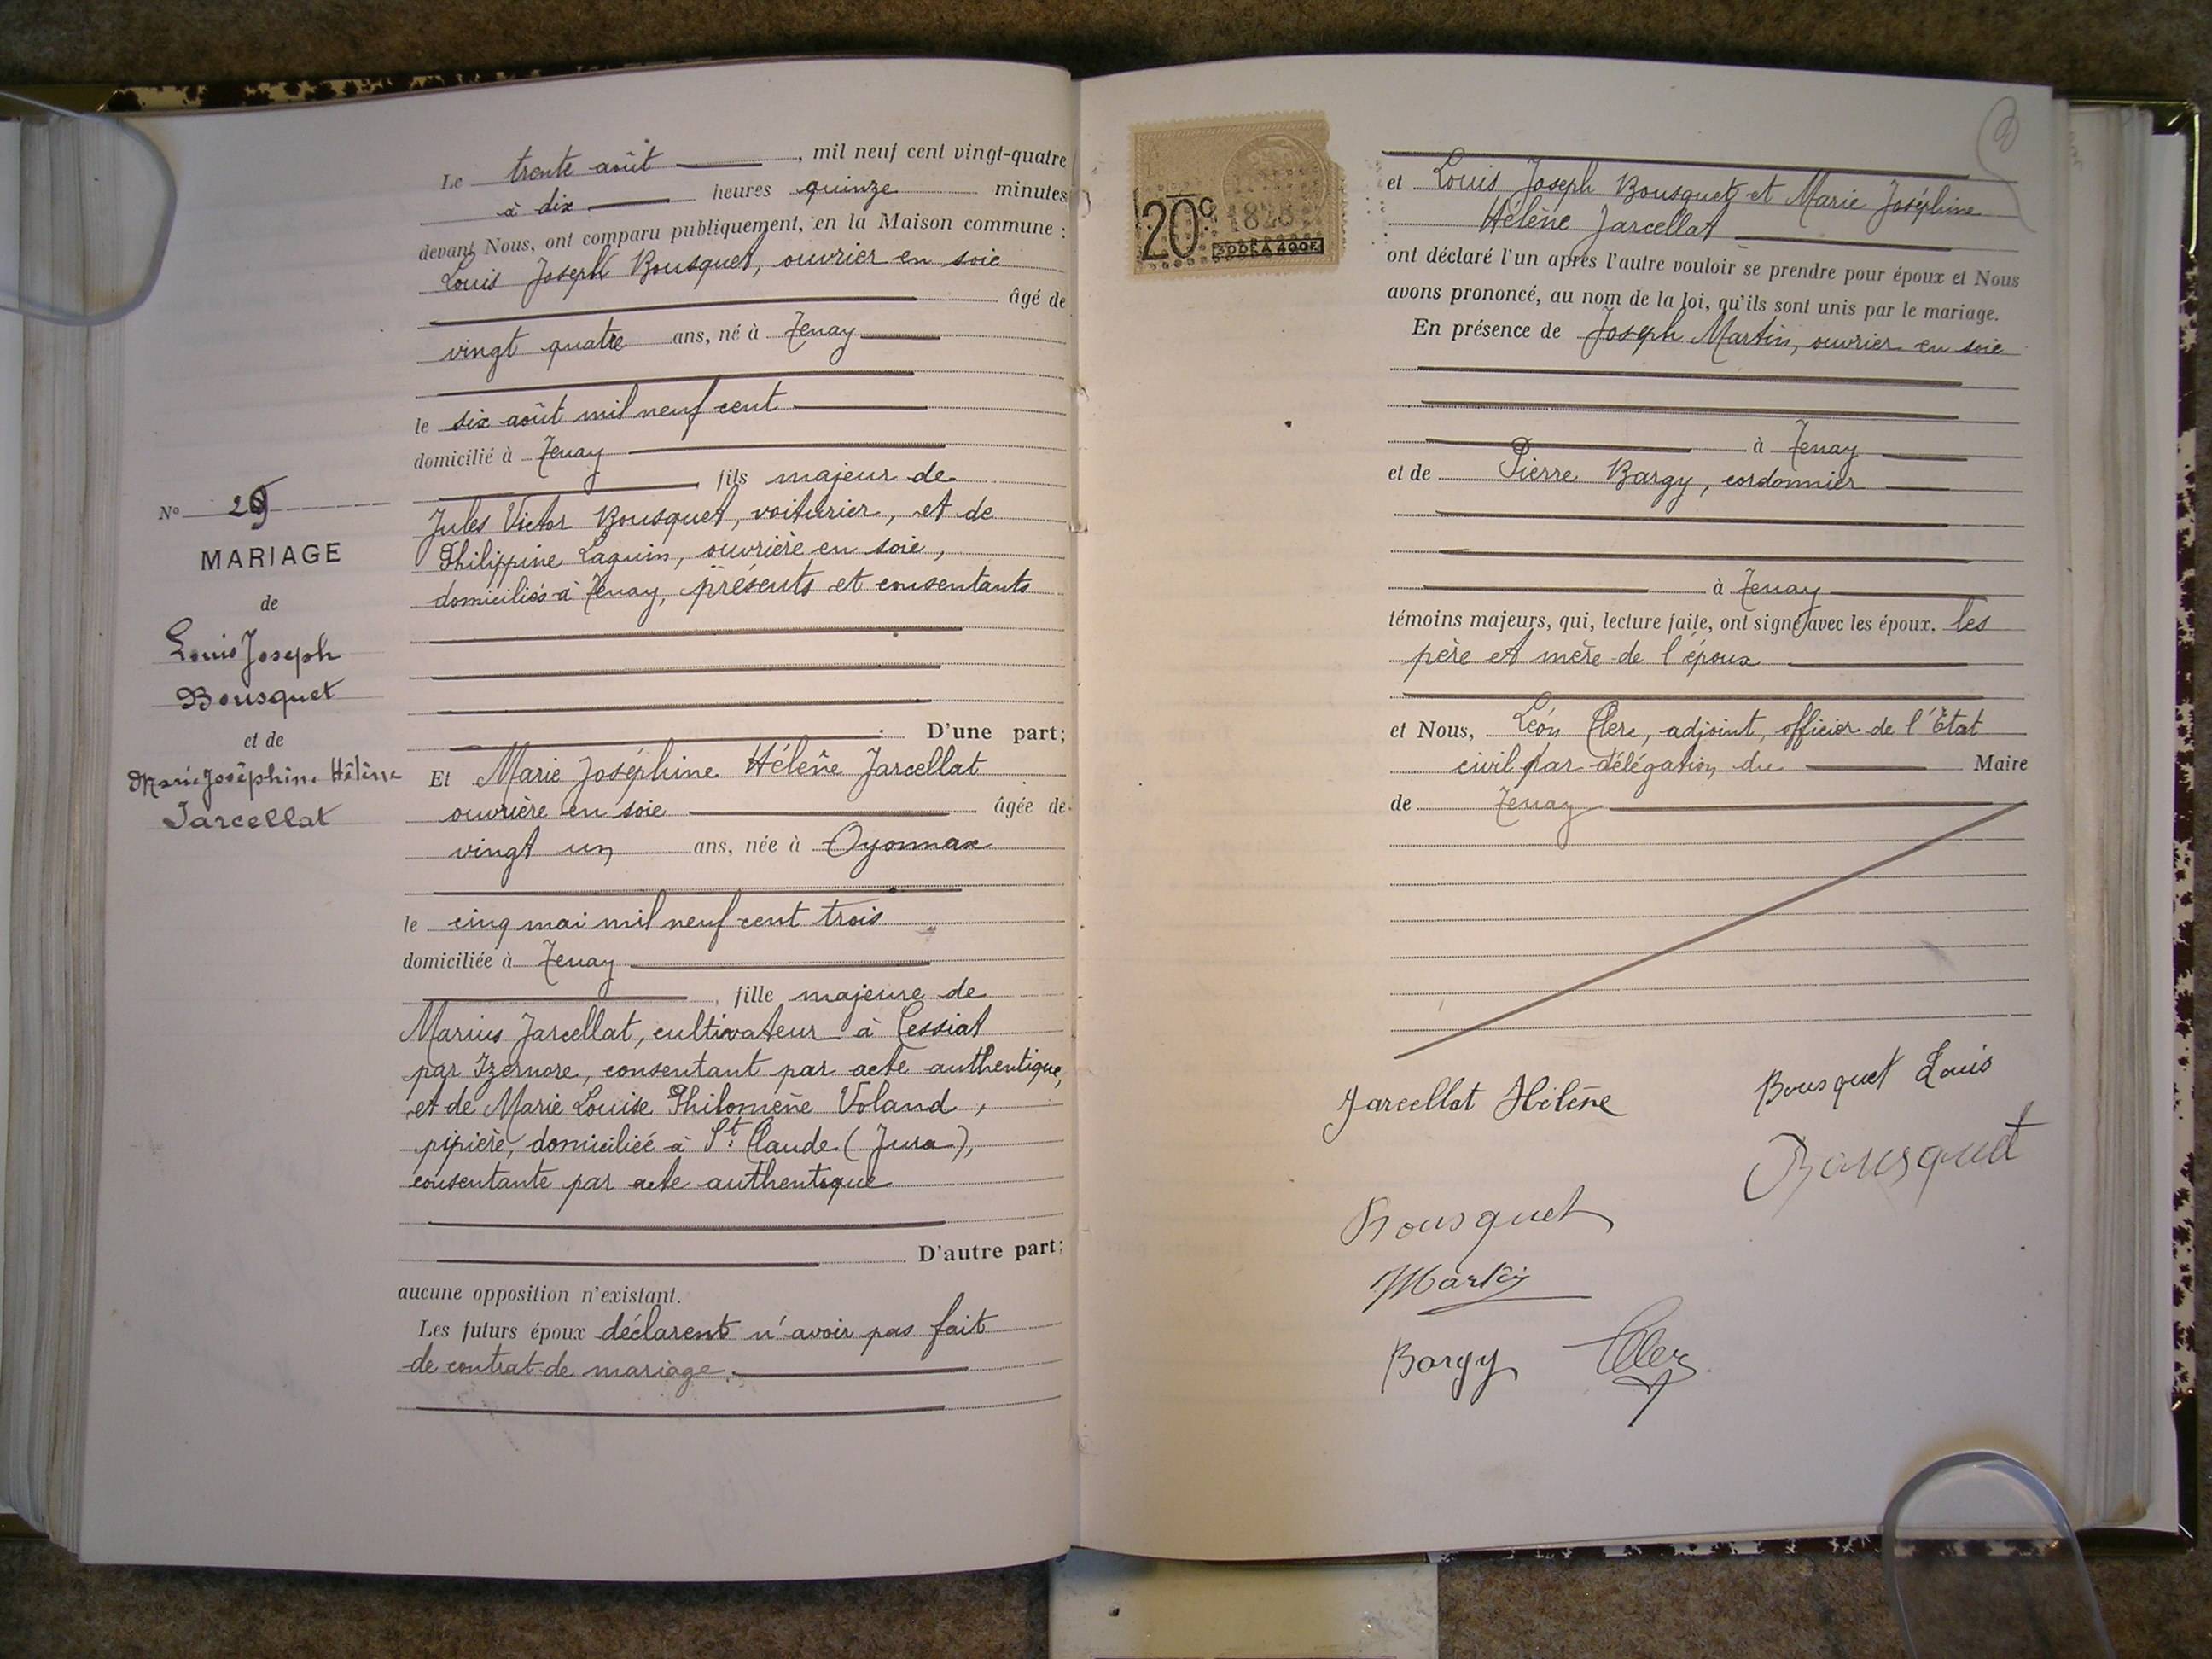 Le trente août, mil neuf cent vingt-quatre
à dix heures quinze minutes
devant Nous, ont comparu publiquement, en la Maison commune :
Louis Joseph Bousquet, ouvrier en soie
âgé de
vingt quatre ans, né à Tenay
le six août mil neuf cent
domicilié à Tenay
, fils majeur de
Jules Victor Bousquet, voiturier, et de
Philippine Laguin, ouvrière en soie,
domiciliés à Tenay, présents et consentants
D'une part;
Et Marie Joséphine Hélène Jarcellat
ouvrière en soie âgée de
vingt un ans, née à Oyonnax
le cinq mai mil neuf cent trois
domiciliée à Tenay
, fille majeure de
Marius Jarcellat, cultivateur à Cessiat
par Izernore, consentant par acte authentique,
et de Marie Louise Philomène Voland,
pipière, domiciliée à St. Claude (Jura),
consentante par acte authentique
D'autre part;
aucune opposition n'existant.
Les futurs époux déclarent n'avoir pas fait
de contrat de mariage.
No 29
MARIAGE
de
Louis Joseph
Bousquet
et de
Marie Joséphine Hélène
Jarcellat
20c
300F À 400F
et Louis Joseph Bousquet et Marie Joséphine
Hélène Jarcellat
ont déclaré l'un après l'autre vouloir se prendre pour époux et Nous
avons prononcé, au nom de la loi, qu'ils sont unis par le mariage.
En présence de Joseph Martin, ouvrier en soie
à Tenay
et de Pierre Bargy, cordonnier
à Tenay
témoins majeurs, qui, lecture faite, ont signé avec les époux. les
père et mère de l'époux
et Nous, Léon Clerc, adjoint, officier de l'État
civil par délégation du Maire
de Tenay
Jarcellat Hélène
Bousquet Louis
Bousquet
Bousquet
Martin
Bargy Clerc